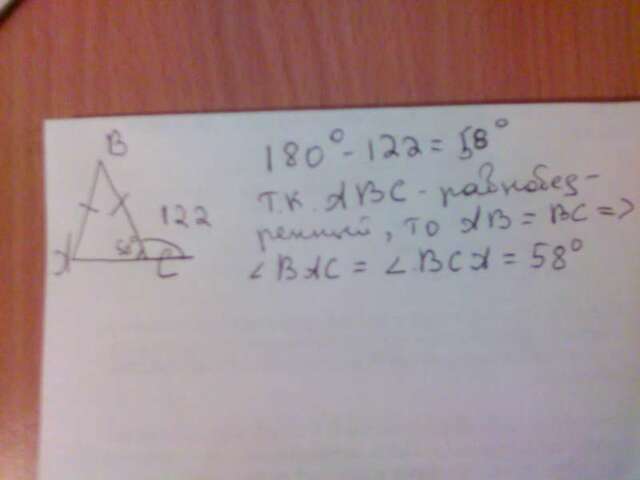 B
122
58°
A
C
180° - 122 = 58°
т.к. ABC - равнобед-
ренный, то AB = BC =>
∠BAC = ∠BCA = 58°